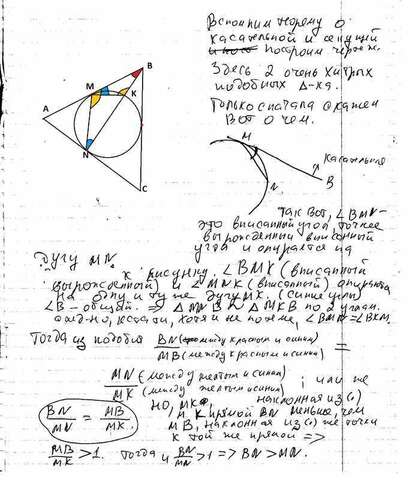 Вспомним теорему о
касательной и секущей
построим чертеж.
Здесь 2 очень хитрых
подобных Δ-ка.
Только сначала скажем
вот о чем.
B
M
K
A
N
C
M
N
B
касательная
Так вот, ∠BMN-
это вписанный угол, точнее
вырожденный вписанный
угол и опирается на
дугу MN.
К рисунку. ∠BMK (вписанный
вырожденный) и ∠MNK (вписанный) опираются
на одну и ту же дугу MK. (синие углы)
∠B - общий. => ΔMNB ∾ ΔMKB по 2 углам.
кстати, хотя и не по теме, ∠BMN=∠BKM.
Тогда из подобия BN (между красным и синим)
MB (между красным и синим)
=
MN (между желтым и синим)
MK (между желтым и синим)
; или же
BN/MN = MB/MK.
Но, MK, наклонная из (·)
M к прямой BN меньше, чем
MB, наклонная из (·) же точки
к той же прямой =>
MB/MK >1. Тогда и BN/MN >1 => BN > MN.